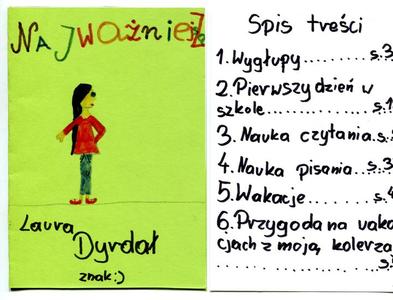 Najważniejsze
Laura
Dyrdał
znak:)
Spis treści
1. Wygłupy........s.3
2. Pierwszy dzień w
szkole...............s.1
3. Nauka czytania.s.
4. Nauka pisania...s.3
5. Wakacje........s.4
6. Przygoda na waka
cjach z moją koleża
...................s.